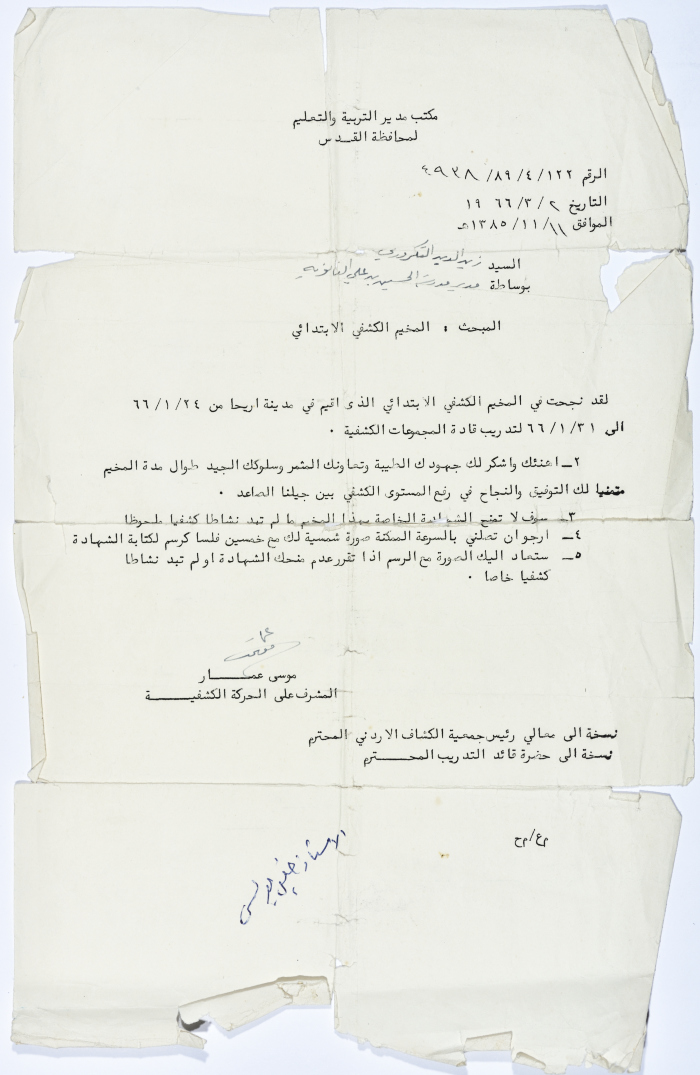 مكتب مدير التربية والتعليم
لمحافظة القدس
الرقم ١٢٢/ ٤/ ٨٩/ ٤٩٣٨
التاريخ ٢/ ٣/ ٦٦ ١٩
الموافق ١١/ ١١/ ١٣٨٥هـ
السيد زين الدين التكروري
بوساطة مدير مدرسة الحسين بن علي الثانوية
المبحث : المخيم الكشفي الابتدائي
لقد نجحت في المخيم الكشفي الابتدائي الذى اقيم في مدينة اريحا من ٦٦/١/٢٤
الى ٦٦/١/٣١ لتدريب قادة المجموعات الكشفية .
٢ـ اهنئك واشكر لك جهودك الطيبة وتعاونك المثمر وسلوكك الجيد طوال مدة المخيم
متمنيا لك التوفيق والنجاح في رفع المستوى الكشفي بين جيلنا الصاعد .
٣ـ سوف لا تمنح الشهادة الخاصة بهذا المخيم ما لم تبد نشاطا كشفيا ملحوظا
٤ـ ارجو ان تصلني بالسرعة الممكنة صورة شمسية لك مع خمسين فلسا كرسم لكتابة الشهادة
٥ـ ستعاد اليك الصورة مع الرسم اذا تقرر عدم منحك الشهادة او لم تبد نشاطا
كشفيا خاصا .
موسى عمـــــار
المشرف على الحركة الكشفيـــــة
نسخة الى معالي رئيس جمعية الكشاف الاردني المحترم
نسخة الى حضرة قائد التدريب المحـــــترم
م ع/م ح
الاستاذ